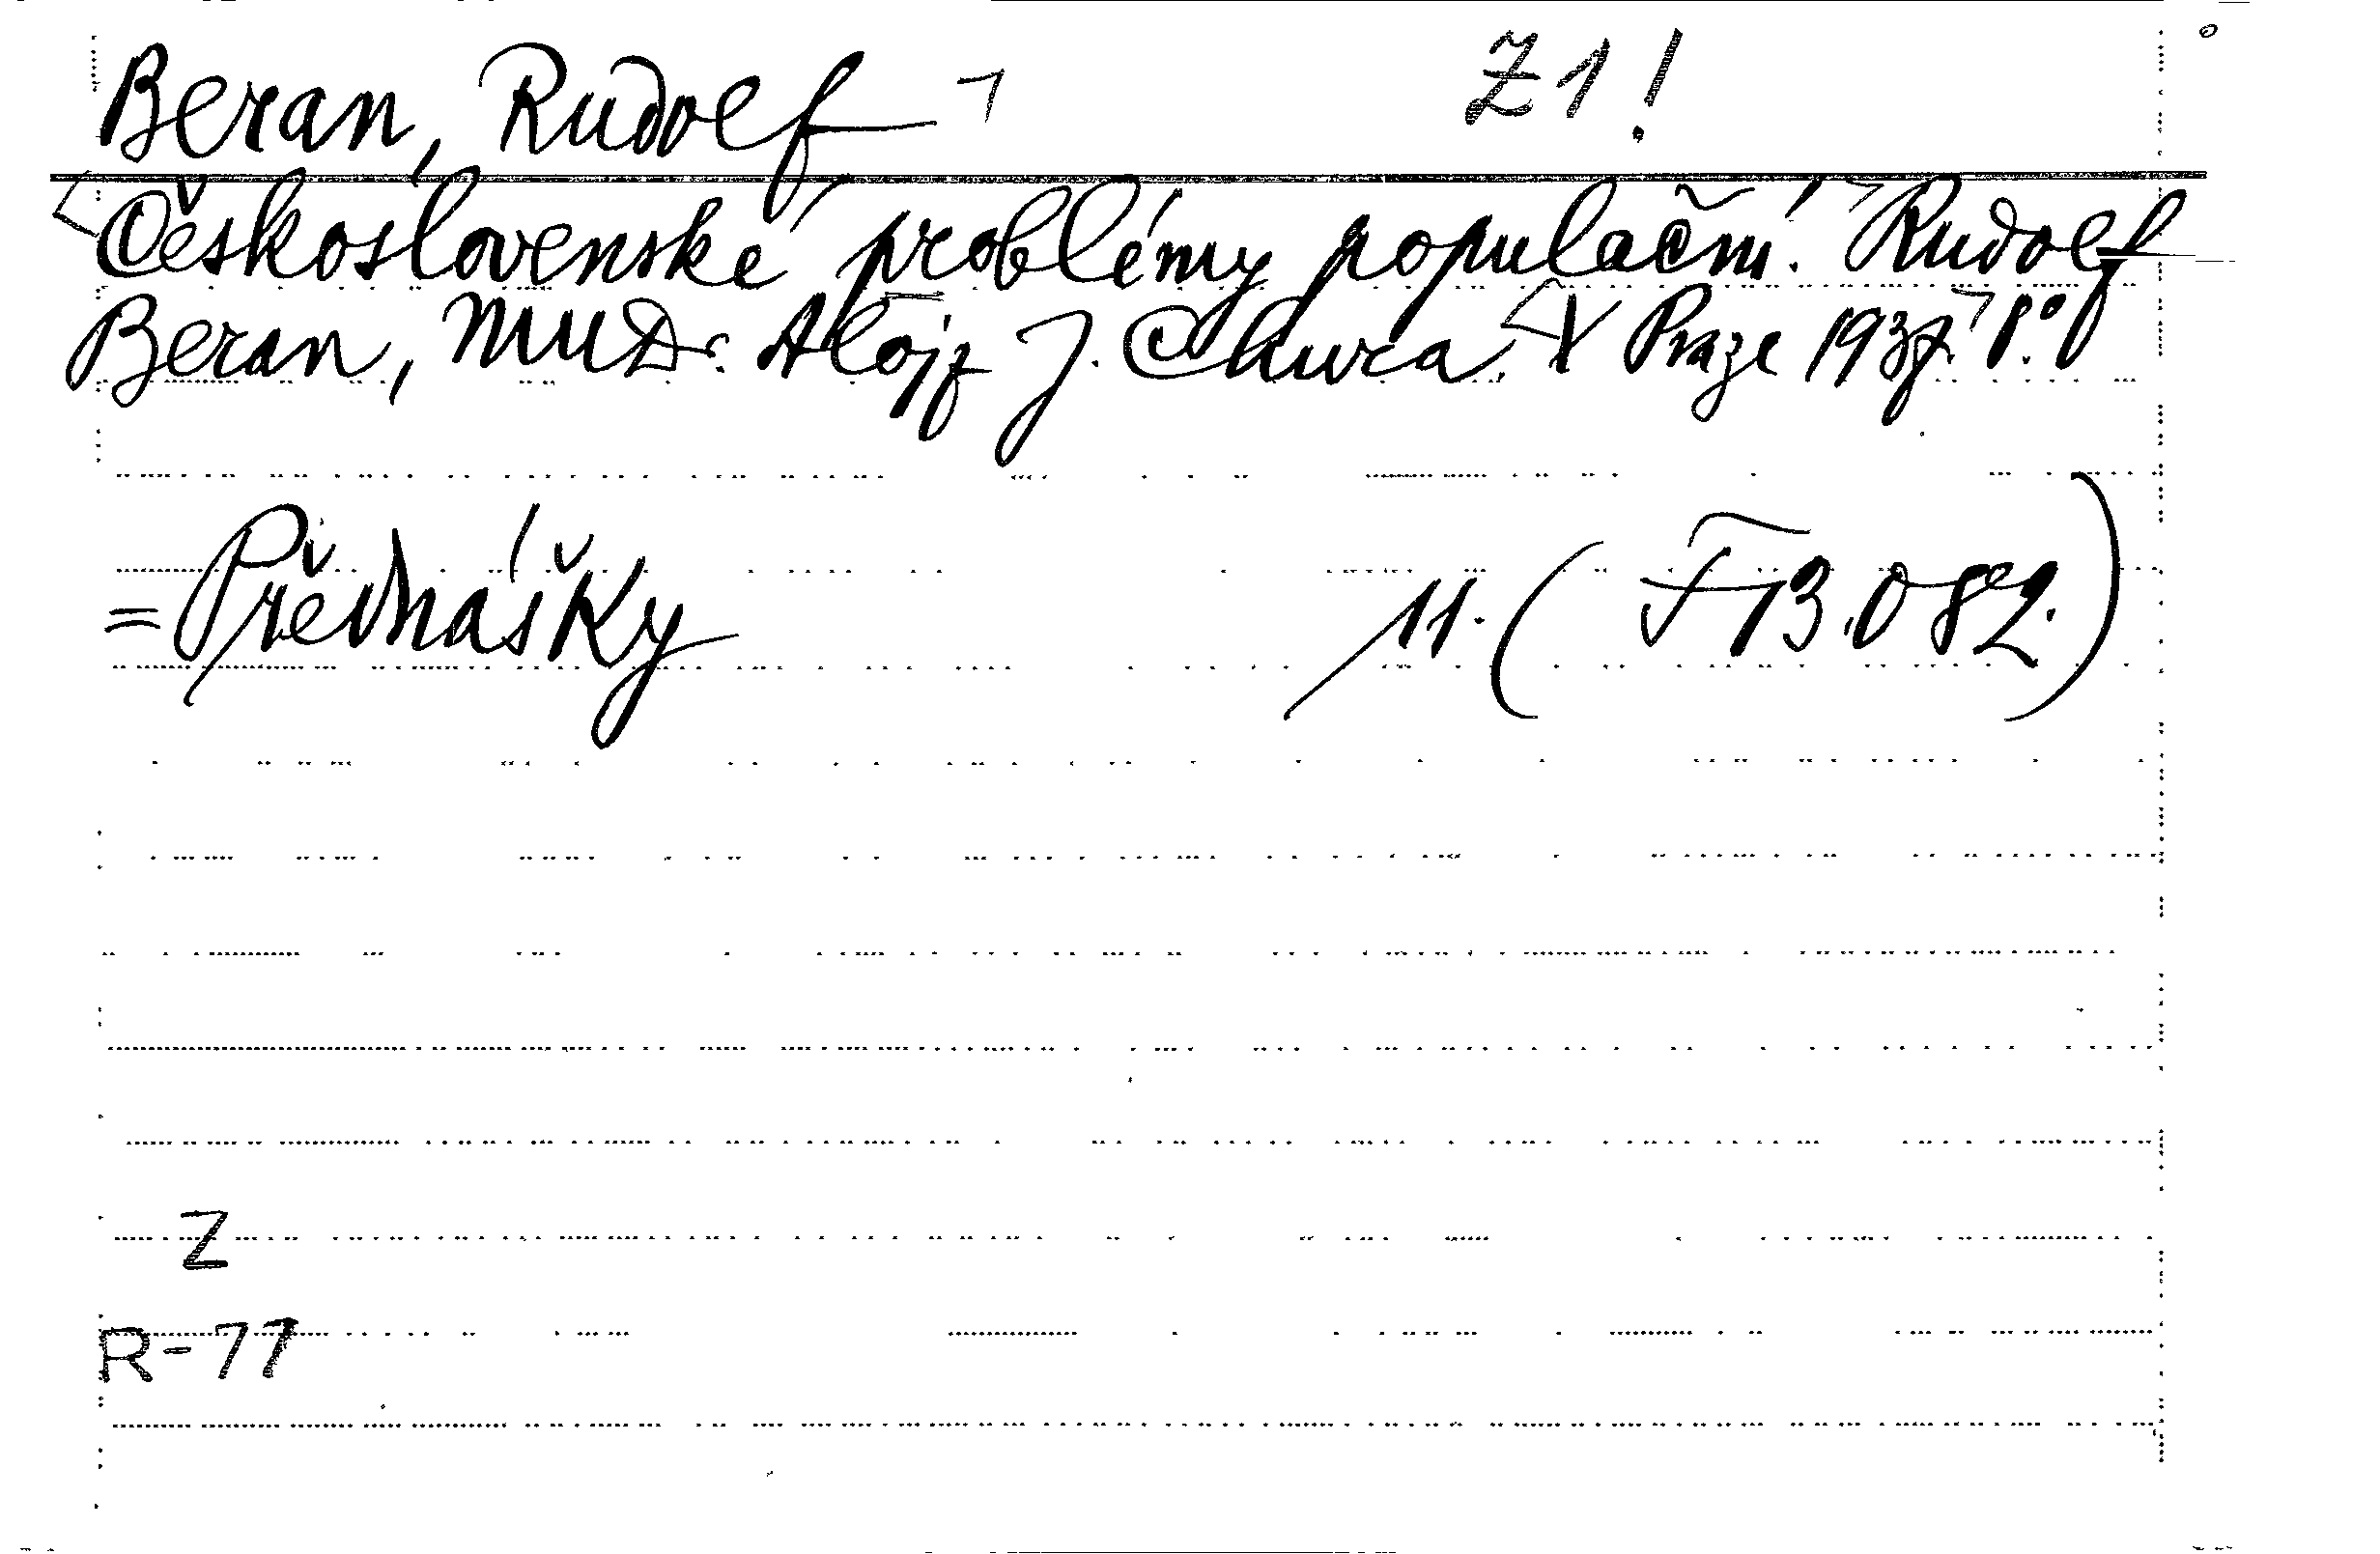 Beran, Rudolf Z1!
Československé problémy populační. Rudolf
Beran, MUDr. Alojz J. Chura. V Praze 1937. 8°
=Přednášky 11. (F 13.082.)
Z
R-77